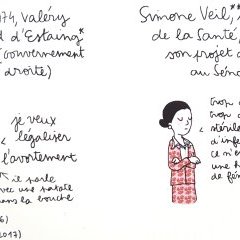 974, Valéry
d d'Estaing*
gouvernement
droite)
je veux
légaliser
l'avortement
je parle
avec une patate
dans la bouche
6)
2017)
Simone Veil,**
de la Santé,
son projet d
au Séna
trop d
trop d
stéri
d'infe
ce n'e
une h
de fé